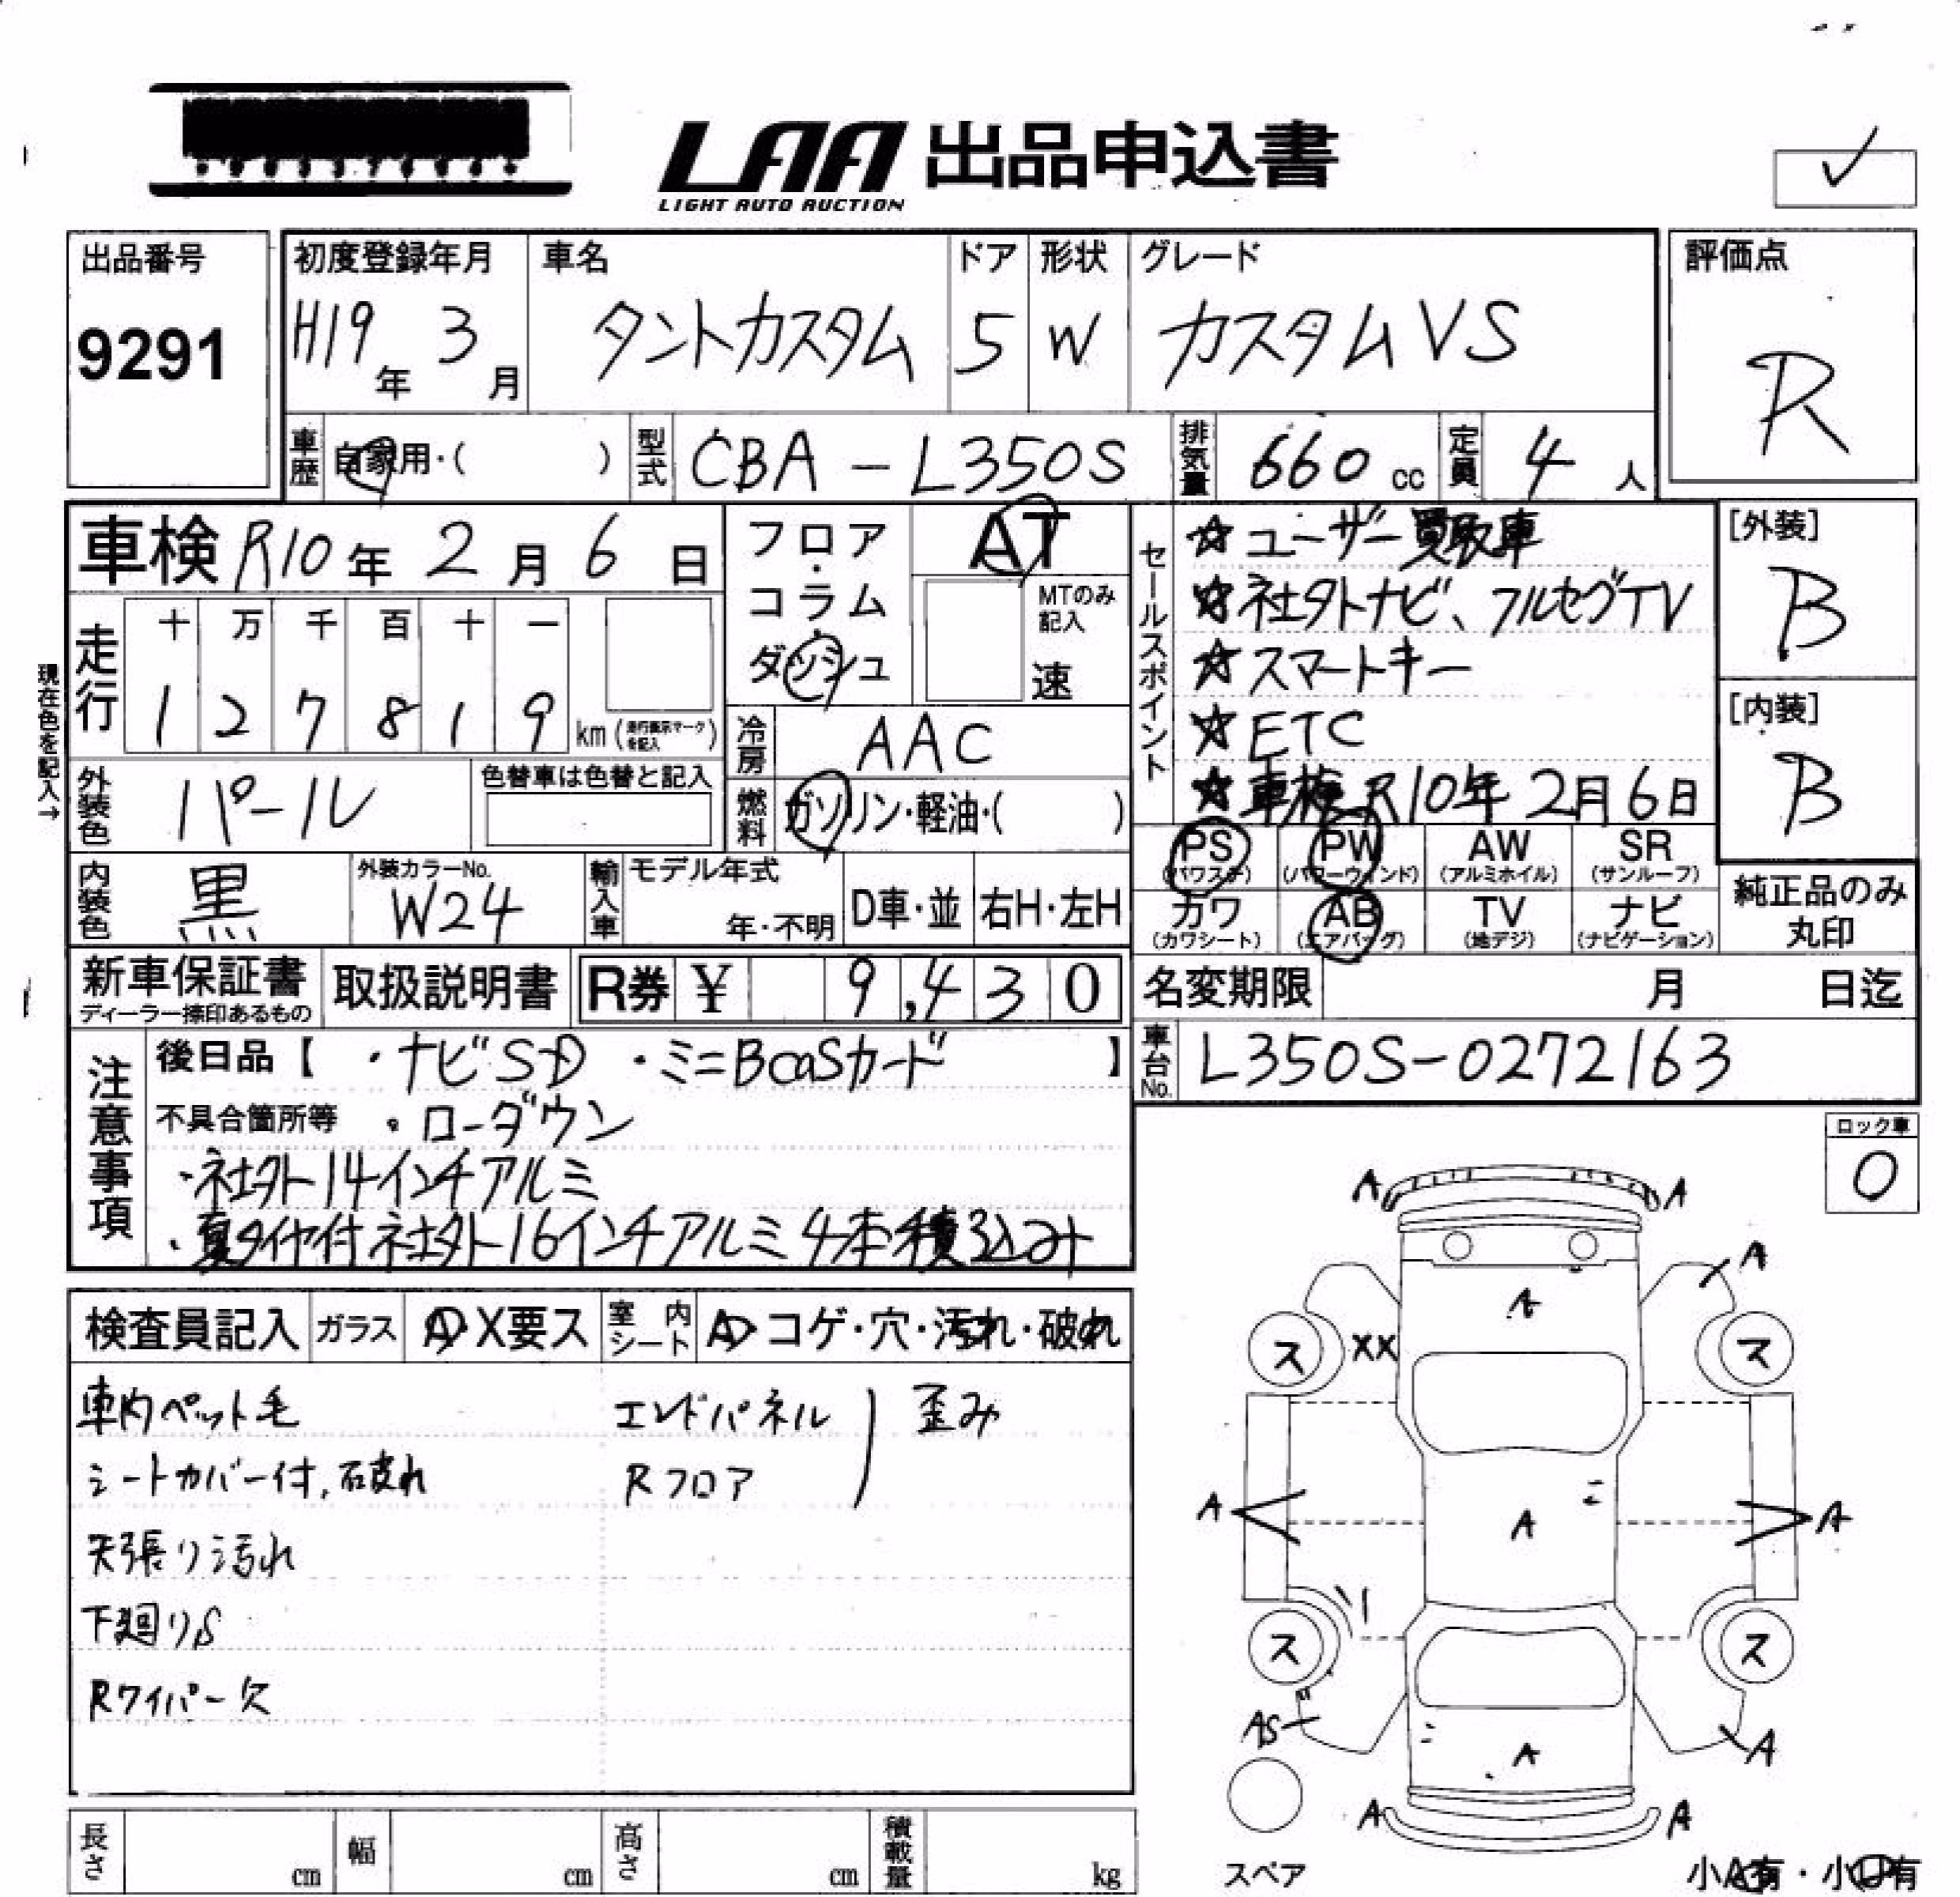 LAA 出品申込書
LIGHT AUTO AUCTION
✓
出品番号
9291
初度登録年月
H19年 3月
車名
タントカスタム
ドア
5
形状
W
グレード
カスタムVS
評価点
R
車歴 自家用・( )
型式 CBA-L350S
排気量 660 cc
定員 4 人
車検 R10年 2月 6日
フロア・コラム・ダッシュ
AT
MTのみ記入
速
セールスポイント
☆ユーザー買取車
☆社外ナビ、フルセグTV
☆スマートキー
☆ETC
☆車検R10年2月6日
[外装]
B
[内装]
B
現在色を記入→
走行
十 万 千 百 十 一
1 2 7 8 1 9 km(走行表示マークを記入)
冷房 AAC
外装色 パール
色替車は色替と記入
燃料 ガソリン・軽油・( )
PS (パワステ)
PW (パワーウィンド)
AW (アルミホイル)
SR (サンルーフ)
カワ (カワシート)
AB (エアバッグ)
TV (地デジ)
ナビ (ナビゲーション)
純正品のみ丸印
内装色 黒
外装カラーNo. W24
輸入車
モデル年式
年・不明
D車・並
右H・左H
新車保証書
ディーラー捺印あるもの
取扱説明書
R券 ¥ 9,430
名変期限 月 日迄
車台No. L350S-0272163
注意事項
後日品【 ・ナビSD ・ミニBcasカード 】
不具合箇所等 ・ローダウン
・社外14インチアルミ
・夏タイヤ付社外16インチアルミ4本積込み
ロック車
0
検査員記入
ガラス A・X要ス
室内シート A・コゲ・穴・汚れ・破れ
車内ペット毛
シートカバー付,破れ
天張り汚れ
下廻りS
Rワイパー欠
エンドパネル
Rフロア
歪み
A A
A
A
ス XX ス
A A A
ス ス
AS A A
A A
スペア
小A有・小U有
長さ cm
幅 cm
高さ cm
積載量 kg